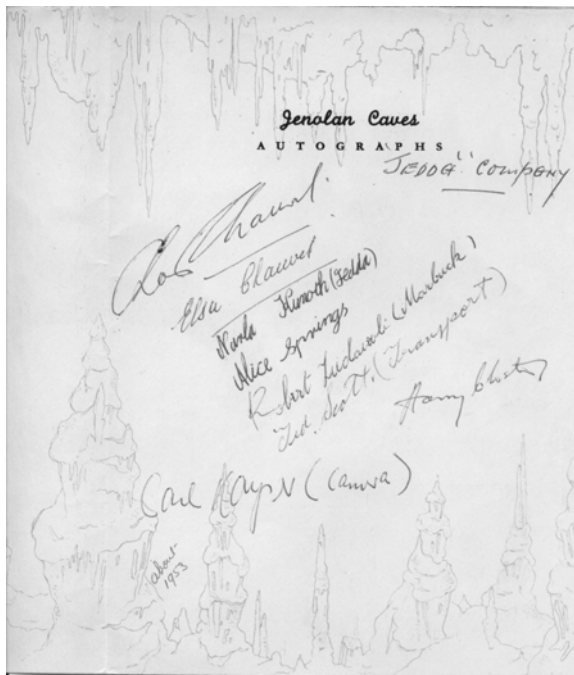 Jenolan Caves
AUTOGRAPHS
"JEDDA" COMPANY
Chas Chauvel
Elsa Chauvel
Narla Kunoth (Jedda)
Alice Springs
Robert Tudawali (Marbuck)
Ted. Scott. (Transport)
Harry
Carl Kayser (camera)
about
1953